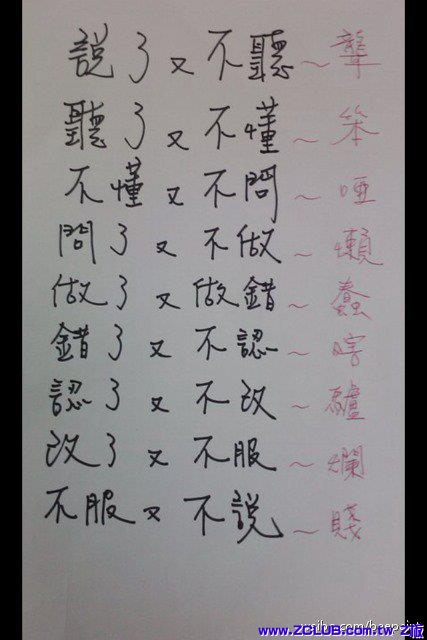 說了又不聽~聾
聽了又不懂~笨
不懂又不問~啞
問了又不做~懶
做了又做錯~蠢
錯了又不認~瞎
認了又不改~驢
改了又不服~爛
不服又不說~賤
www.ZCLUB.com.tw Z板